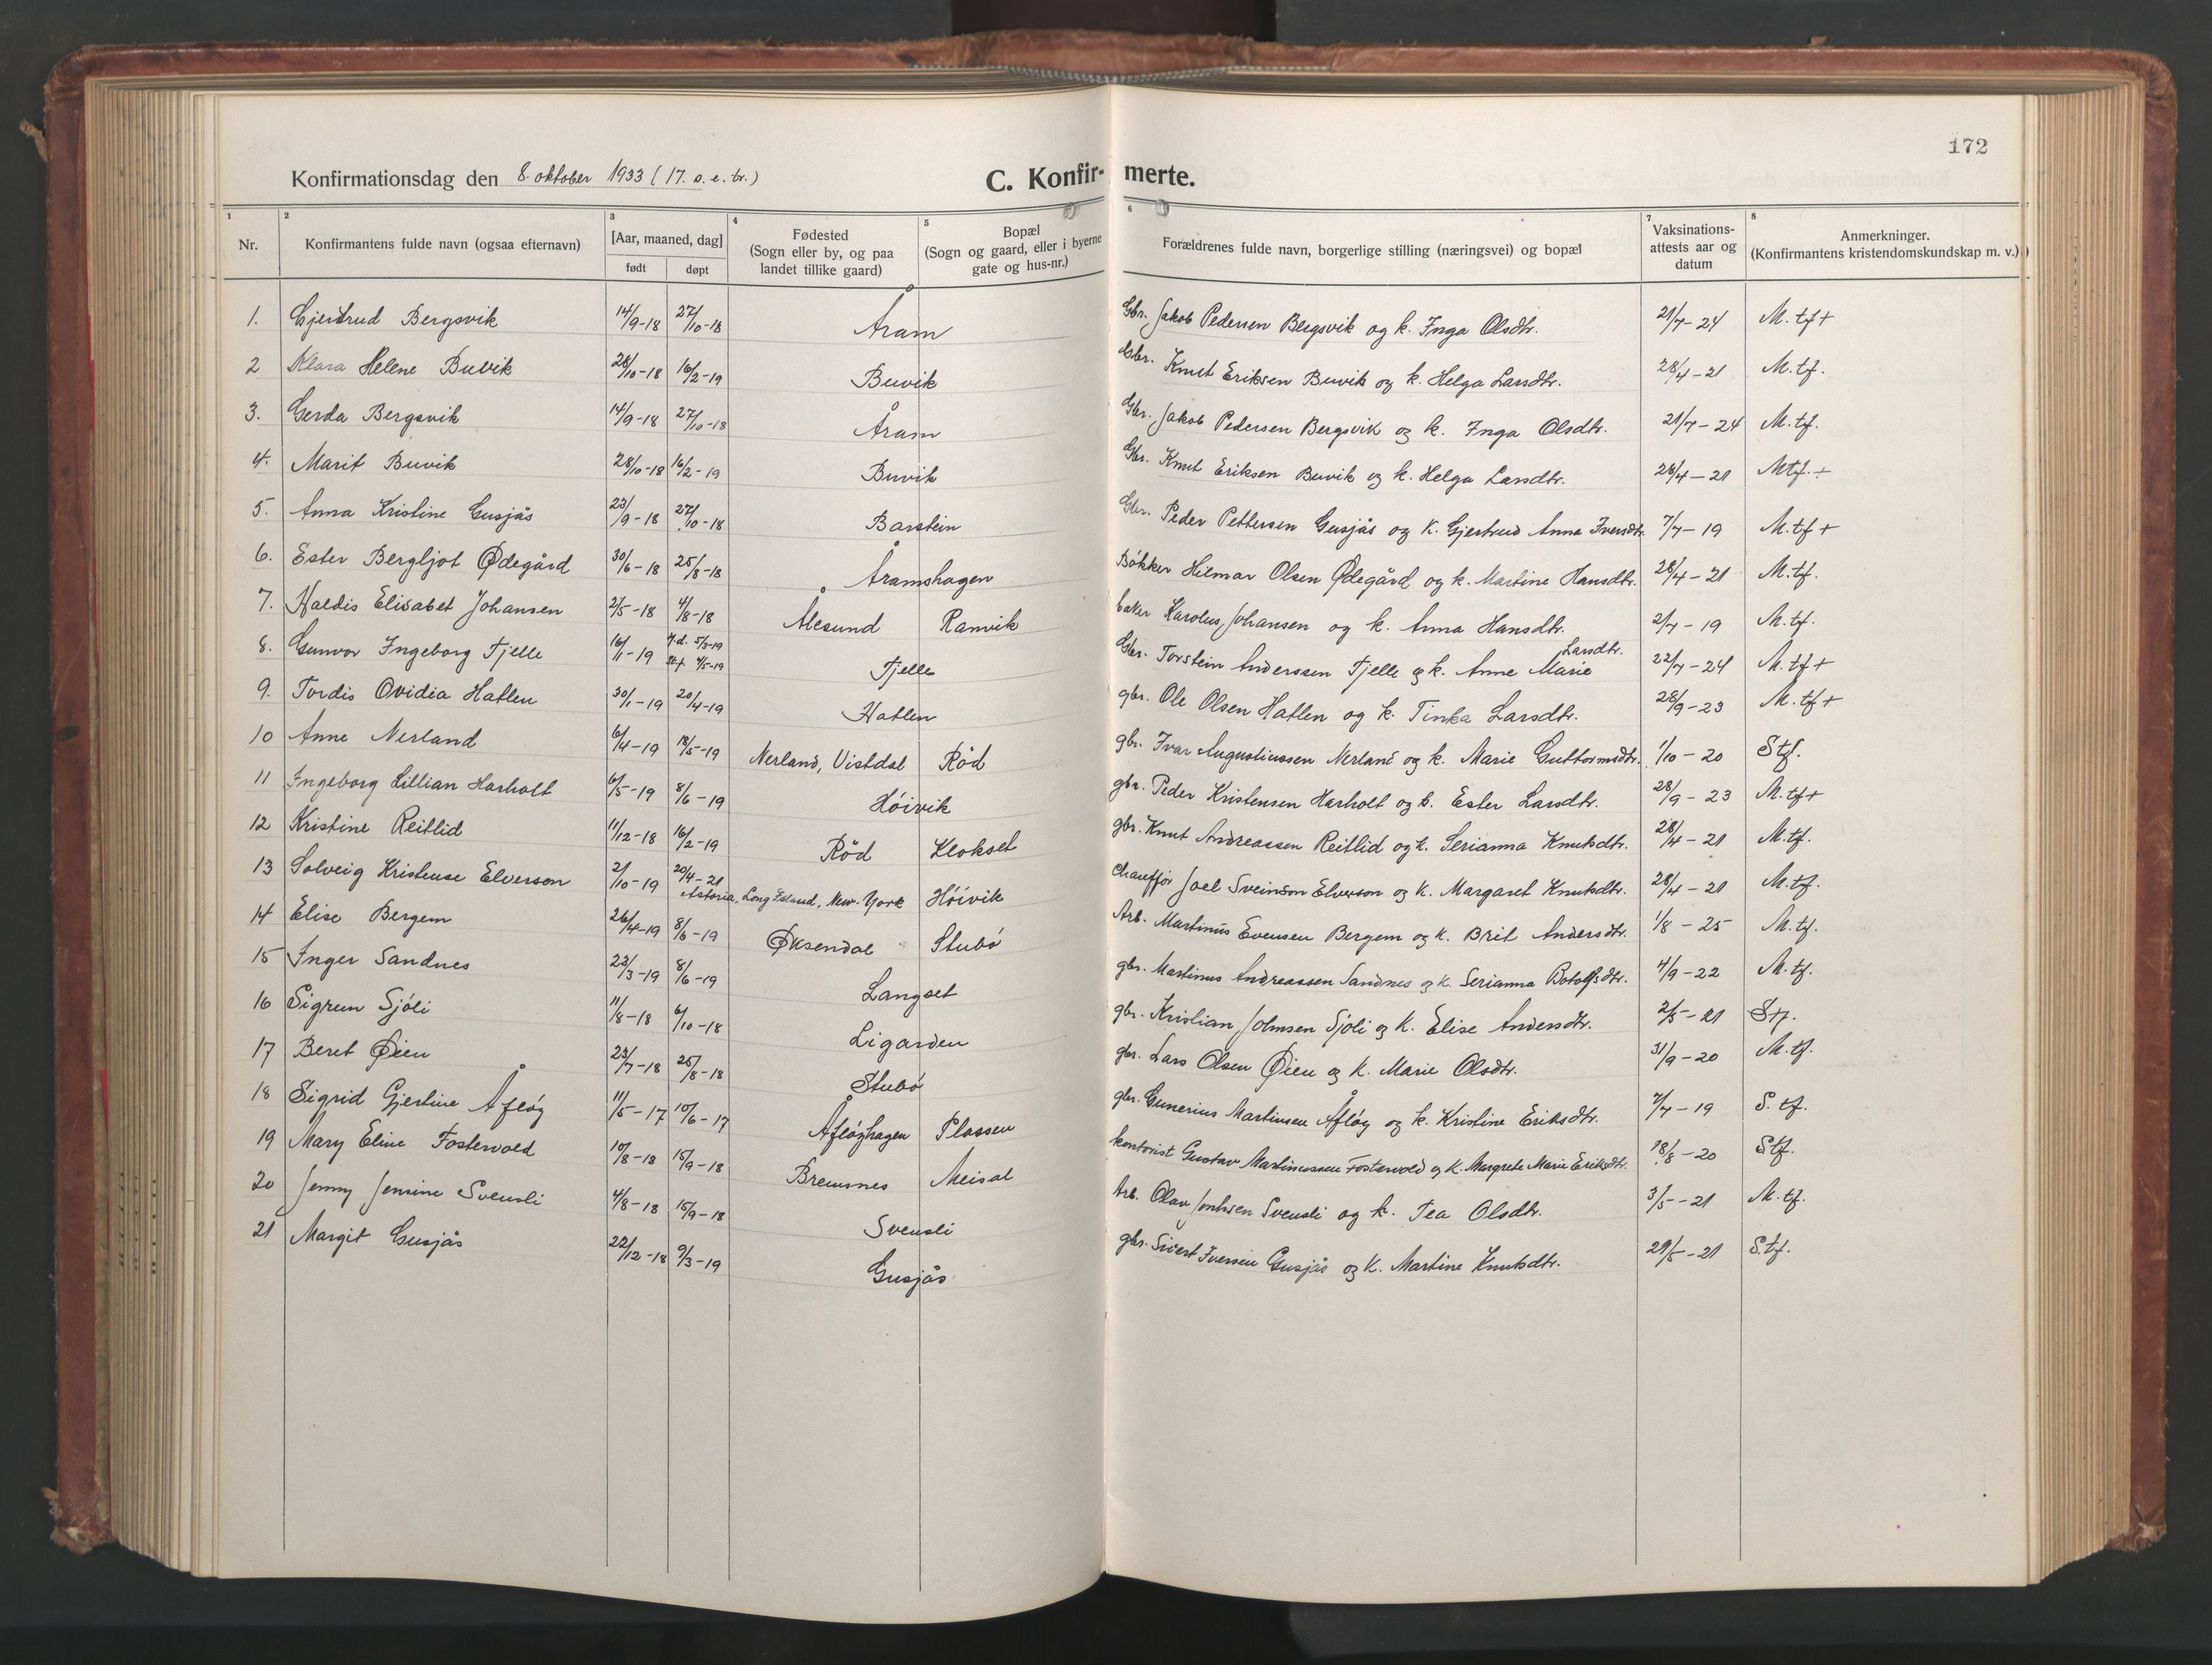 172
Konfirmationsdag den 8. oktober 1933 (17. s. e. tr.) C. Konfir- merte.
1 2 3 4 5 6 7 8
Nr. Konfirmantens fulde navn (ogsaa efternavn) [Aar, maaned, dag] født døpt Fødested (Sogn eller by, og paa landet tillike gaard) Bopæl (Sogn og gaard, eller i byerne gate og hus-nr.) Forældrenes fulde navn, borgerlige stilling (næringsvei) og bopæl Vaksinations-attests aar og datum Anmerkninger. (Konfirmantens kristendomskundskap m. v.)
1. Gjertrud Bergsvik 14/9-18 27/10-18 Åram Gbr. Jakob Pedersen Bergsvik og k. Inga Olsdtr. 21/7-24 M. tf +
2 Klara Helene Buvik 28/10-18 16/2-19 Buvik Gbr. Knut Eriksen Buvik og k. Helga Larsdtr. 28/4-21 M. tf.
3. Gerda Bergsvik 14/9-18 27/10-18 Åram Gbr. Jakob Pedersen Bergsvik og k. Inga Olsdtr. 21/7-24 M. tf.
4. Marit Buvik 28/10-18 16/2-19 Buvik Gbr. Knut Eriksen Buvik og k. Helga Larsdtr. 28/4-21 Mtf. +
5. Anna Kristine Gusjås 23/9-18 27/10-18 Barstein Gbr. Peder Pettersen Gusjås og K. Gjertrud Anna Iversdtr. 7/7-19 M. tf +
6. Ester Bergljot Ødegård 30/6-18 25/8-18 Åramshagen Bökker Hilmar Olsen Ødegård og k. Martine Hansdtr. 28/4-21 M. tf.
7. Haldis Elisabet Johansen 2/5-18 4/8-18 Ålesund Ranvik baker Karolus Johansen og k. Anna Hansdtr. 2/7-19 M. tf.
8. Gunvor Ingeborg Fjelle 16/1-19 h.d. 5/3-19 st.f. 4/5-19 Fjelle Gbr. Torstein Anderssen Fjelle og k. Anne Marie Larsdtr. 22/7-24 M. tf +
9. Tordis Ovidia Hatlen 30/1-19 20/4-19 Hatlen gbr. Ole Olsen Hatlen og k. Tinka Larsdtr. 28/9-23 M. tf +
10 Anne Nerland 6/4-19 18/5-19 Nerland, Vistdal Röd gbr. Ivar Augustinssen Nerland og k. Marie Guttormsdtr. 1/10-20 Stf.
11 Ingeborg Lillian Harholt 6/5-19 8/6-19 Höivik gbr. Peder Kristensen Harholt og k. Ester Larsdtr. 28/9-23 M. tf +
12 Kristine Reitlid 11/12-18 16/2-19 Röd Klokset gbr. Knut Andreassen Reitlid og k. Serianna Knutsdtr. 28/4-21 M. tf.
13 Solveig Kristense Elverson 2/10-19 20/4-21 Astoria, Long Island, New-York Höivik Chauffør Joel Sveinson Elverson og K. Margaret Knutsdtr. 28/4-21 M. tf.
14 Elise Bergem 26/4-19 8/6-19 Øksendal Stubö Arb. Martinus Evensen Bergem og K. Brit Andersdtr. 1/8-25 M. tf.
15 Inger Sandnes 23/3-19 8/6-19 Langset gbr. Martinus Andreassen Sandnes og K. Serianna Botolfsdtr. 4/9-22 M. tf.
16 Sigrun Sjöli 11/8-18 6/10-18 Ligarden gbr. Kristian Johnsen Sjöli og K. Elise Andersdtr. 2/5-21 Stf.
17 Beret Øien 23/7-18 25/8-18 Stubö gbr. Lars Olsen Øien og K. Marie Olsdtr. 31/9-20 M. tf.
18 Sigrid Gjertine Åflöy 11/5-17 10/6-17 Åflöyhagen Plassen gbr. Gunerius Martinsen Åflöy og k. Kristine Eriksdtr. 7/7-19 S. tf.
19 Mary Eline Fostervold 10/8-18 15/9-18 Bremsnes Meisal kontorist Gustav Martinussen Fostervold og K. Margrete Marie Eriksdtr. 18/8-20 Stf.
20 Jenny Jensine Svensli 4/8-18 15/9-18 Svensli Arb. Olav Johnsen Svensli og k. Tea Olsdtr. 3/5-21 M. tf.
21 Margit Gusjås 22/12-18 9/3-19 Gusjås gbr. Sivert Iversen Gusjås og K. Martine Knutsdtr. 29/5-21 S. tf.